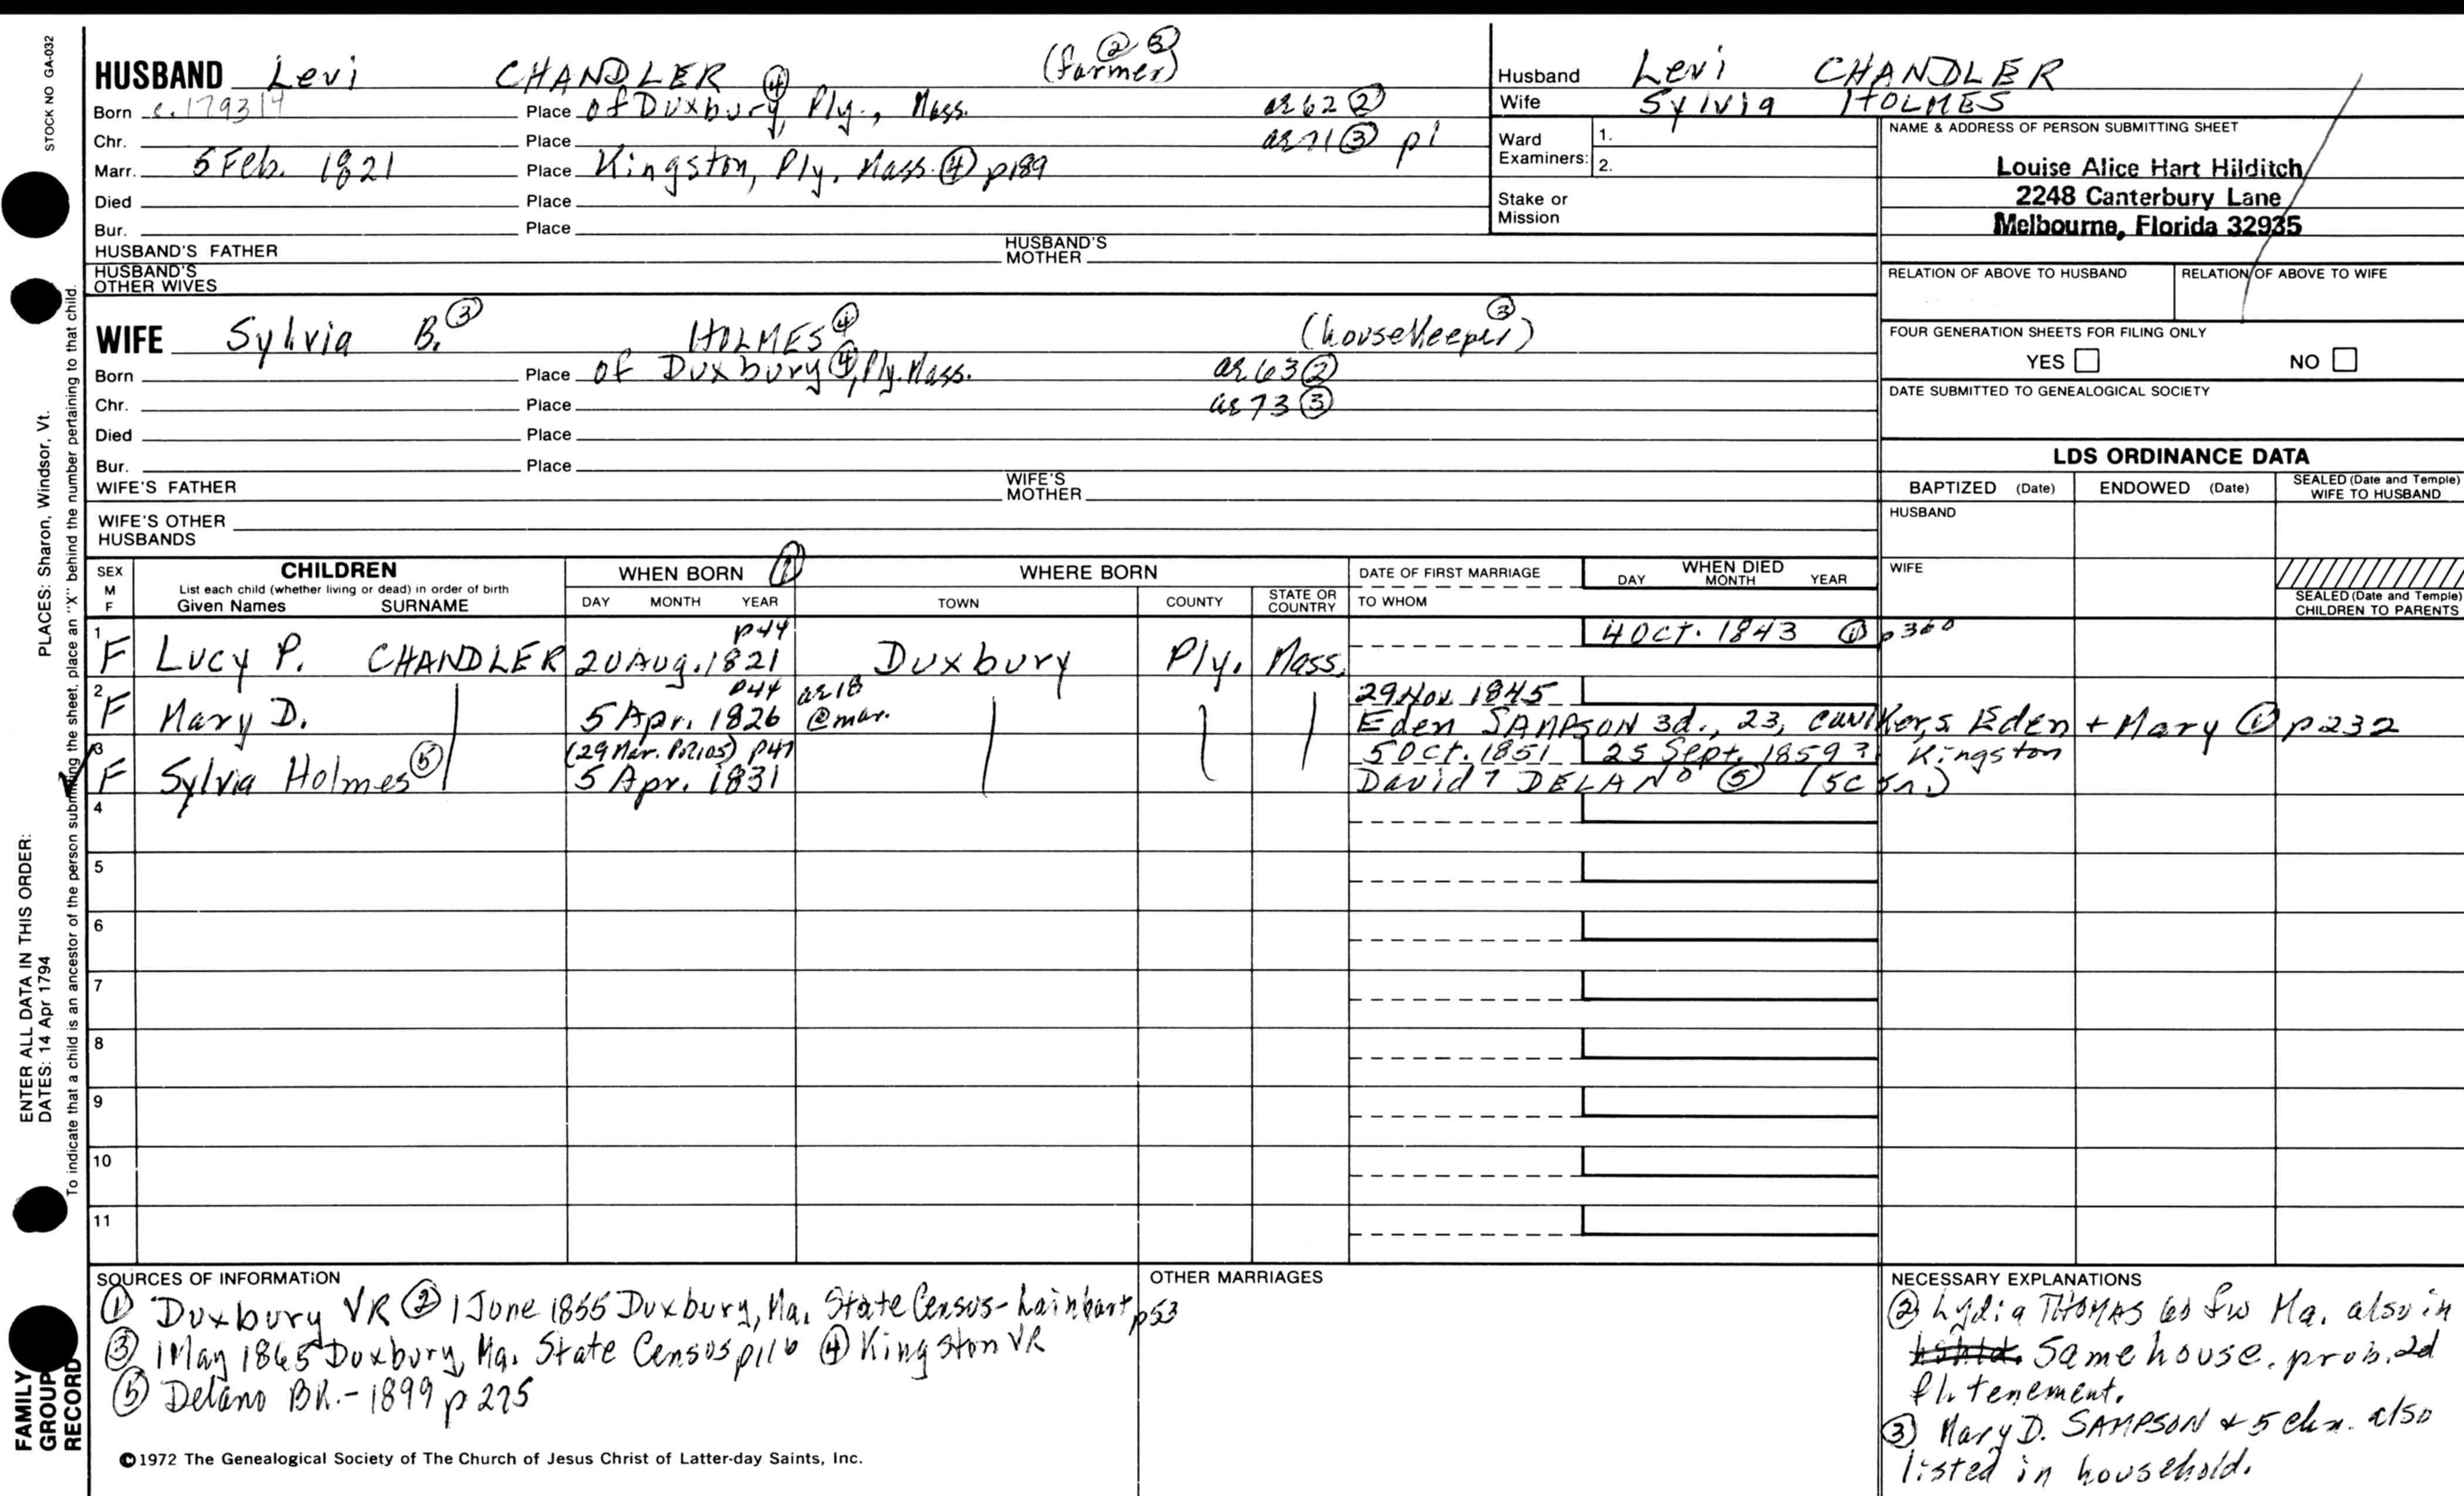 STOCK NO GA-032
HUSBAND Levi CHANDLER ④ (farmer) ② ③
Born c. 1793/4 Place of Duxbury, Ply., Mass. ae 62 ②
Chr. Place ae 71 ③ p1
Marr. 5 Feb. 1821 Place Kingston, Ply. Mass. ④ p189
Died Place
Bur. Place
HUSBAND'S FATHER HUSBAND'S MOTHER
HUSBAND'S OTHER WIVES
Husband Levi CHANDLER
Wife Sylvia HOLMES
Ward Examiners: 1.
2.
Stake or Mission
NAME & ADDRESS OF PERSON SUBMITTING SHEET
Louise Alice Hart Hilditch
2248 Canterbury Lane
Melbourne, Florida 32935
RELATION OF ABOVE TO HUSBAND RELATION OF ABOVE TO WIFE
FOUR GENERATION SHEETS FOR FILING ONLY
YES NO
DATE SUBMITTED TO GENEALOGICAL SOCIETY
WIFE Sylvia B. ③ HOLMES ④ (housekeeper) ③
Born Place of Duxbury ④, Ply. Mass. ae 63 ②
Chr. Place ae 73 ③
Died Place
Bur. Place
WIFE'S FATHER WIFE'S MOTHER
WIFE'S OTHER HUSBANDS
LDS ORDINANCE DATA
BAPTIZED (Date) ENDOWED (Date) SEALED (Date and Temple) WIFE TO HUSBAND
HUSBAND
WIFE
SEALED (Date and Temple) CHILDREN TO PARENTS
SEX M F
CHILDREN
List each child (whether living or dead) in order of birth
Given Names SURNAME
WHEN BORN ①
DAY MONTH YEAR
WHERE BORN
TOWN COUNTY STATE OR COUNTRY
DATE OF FIRST MARRIAGE
TO WHOM
WHEN DIED
DAY MONTH YEAR
p44 4 Oct. 1843 ① p360
1 F Lucy P. CHANDLER 20 Aug. 1821 Duxbury Ply. Mass.
p44 ae 18 29 Nov. 1845
2 F Mary D. 5 Apr. 1826 @ mar. Eden SAMPSON 3d., 23, caulker, s Eden + Mary ① p232
(29 Mar. ) p47 5 Oct. 1851 25 Sept. 1859? Kingston
3 F Sylvia Holmes ⑤ 5 Apr. 1831 David 7 DELANO ⑤ (5c
4
5
6
7
8
9
10
11
SOURCES OF INFORMATION
① Duxbury VR ② 1 June 1855 Duxbury, Ma. State Census - Lainhart p53
③ 1 May 1865 Duxbury, Ma. State Census p116 ④ Kingston VR
⑤ Delano BK. - 1899 p 275
OTHER MARRIAGES
NECESSARY EXPLANATIONS
② Lydia THOMAS 60 Ma. also in
same house. prob. 2d
tenement.
③ Mary D. SAMPSON + 5 chn. also
listed in household.
©1972 The Genealogical Society of The Church of Jesus Christ of Latter-day Saints, Inc.
FAMILY GROUP RECORD
ENTER ALL DATA IN THIS ORDER:
DATES: 14 Apr 1794 PLACES: Sharon, Windsor, Vt.
To indicate that a child is an ancestor of the person submitting the sheet, place an "X" behind the number pertaining to that child.